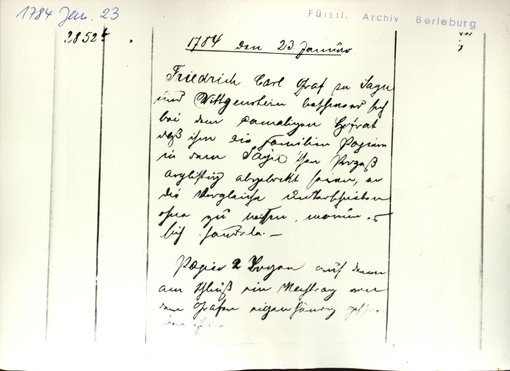 1784 Jan. 23
Fürstl. Archiv Berleburg
2852
1784 den 23 Januar
Friedrich Carl Graf zu Sayn
und Wittgenstein beschwert sich
bei dem damaligen Hofrat
daß ihm die Familien Papiere
in dem Sayn'schen Prozeß
arglistig abgelockt seien, er
die Vergleiche unterschrieben
ohne zu wissen, worum es
sich handele. —
Papier 2 Bogen auf denen
am Schluß ein Nachtrag von
dem Grafen eigenhändig